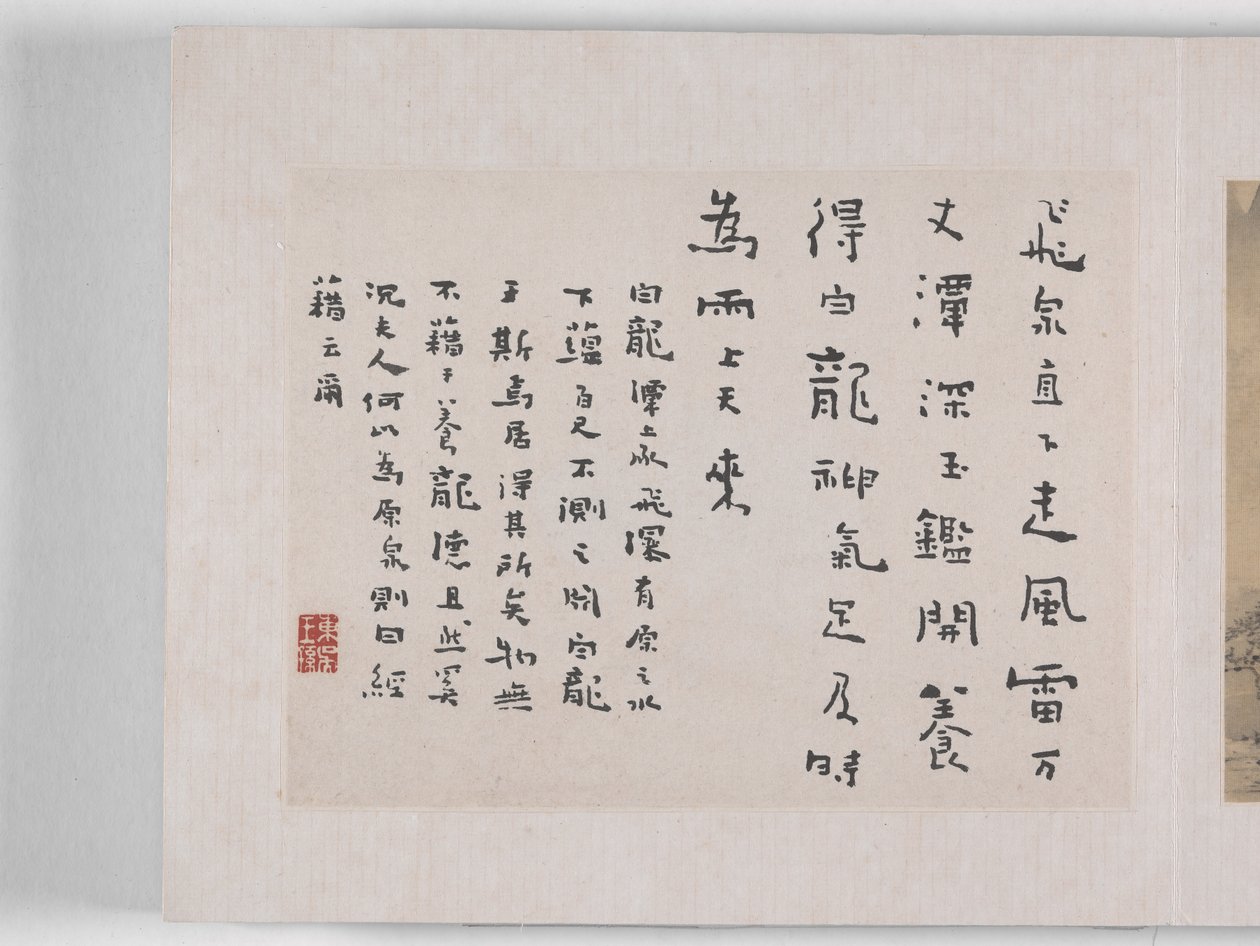 飛泉直下走風雷万
丈潭深玉鑑開養
得白龍神氣足及時
為雨上天來
白龍潭上承飛瀑有原之水
下蘊百尺不測之淵白龍
于斯焉居得其所矣物無
不藉于養龍德且然奚
況夫人何以為原泉則曰經
藉云爾
東吳王孫